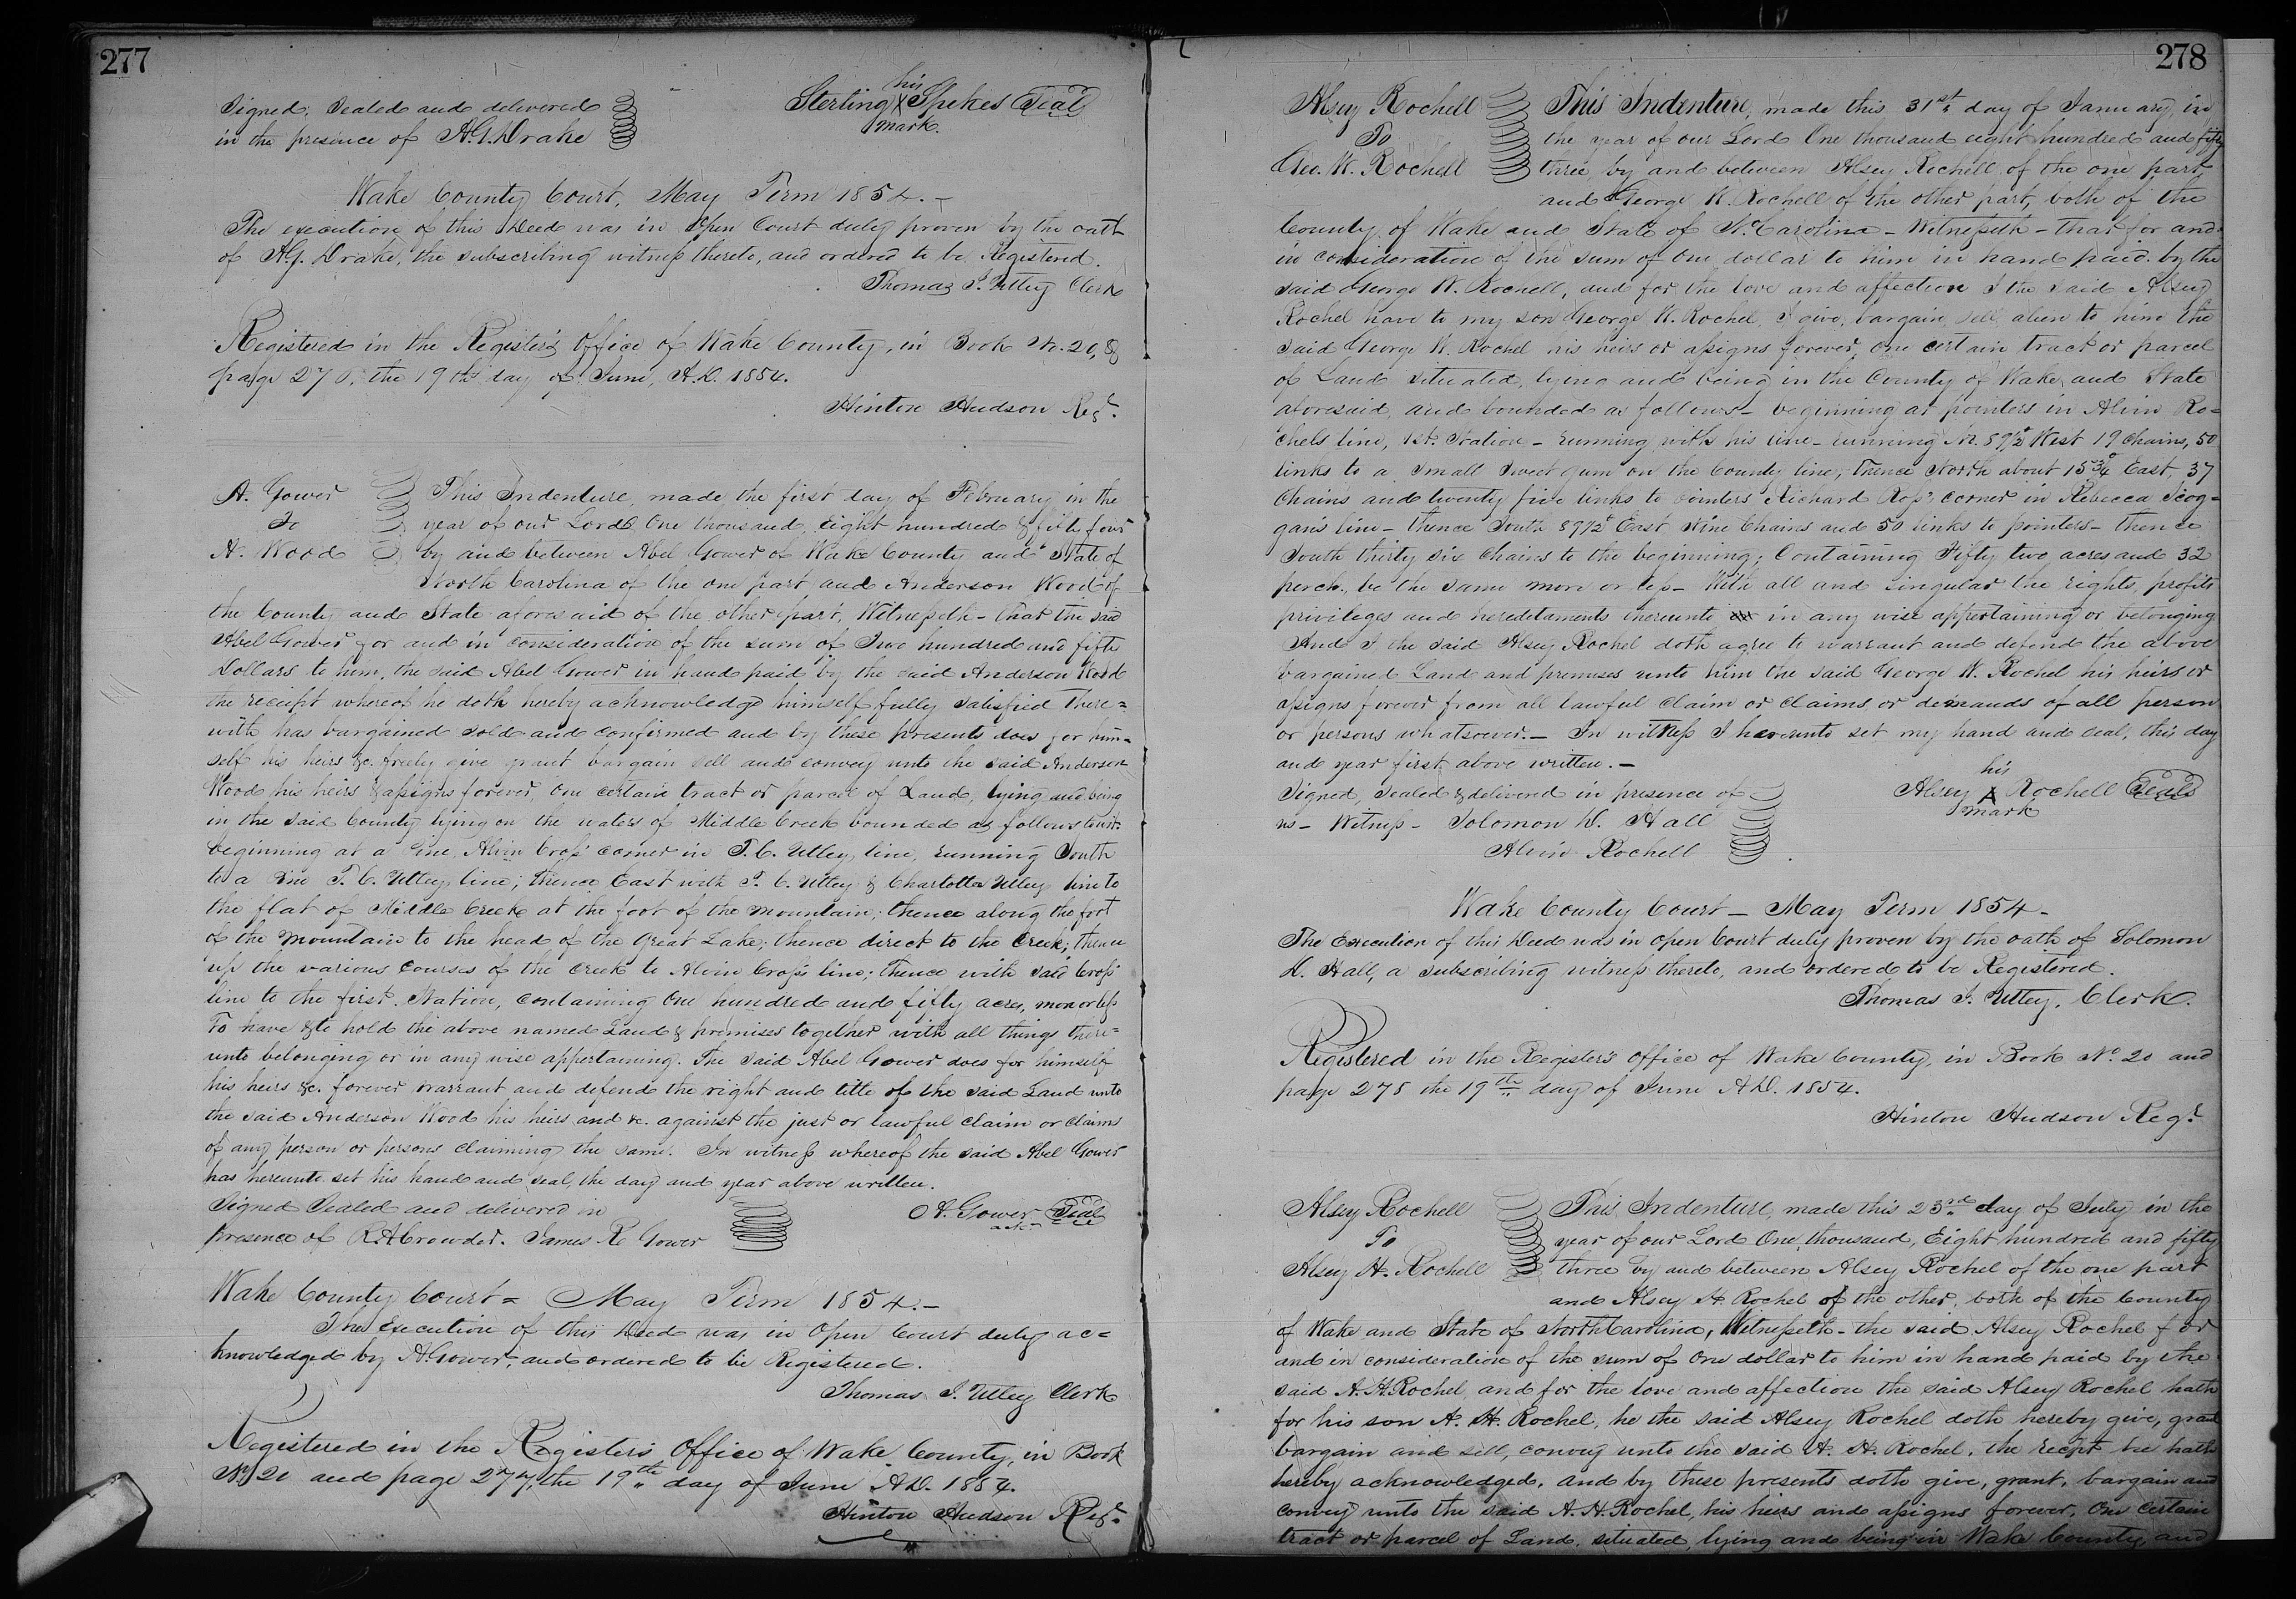 277
his
Sterling X Spikes Seal
mark.
Signed, Sealed and delivered
in the presence of A.G. Drake
Wake County Court, May Term 1854.-
The execution of this Deed was in Open Court duly proven by the oath
of A.G. Drake, the subscribing witness thereto, and ordered to be Registered.
Thomas J. Utley Clerk
Registered in the Register's Office of Wake County, in Book No. 20, &
page 276, the 19th day of June, A.D. 1854.
Hinton Hudson Regr.
A. Gower
To
A. Wood
This Indenture, made the first day of February in the
year of our Lord One thousand, Eight hundred & fifty four
by and between Abel Gower of Wake County and State of
North Carolina of the one part and Anderson Wood of
the County and State aforesaid of the other part, Witnesseth - that the said
Abel Gower for and in consideration of the sum of Two hundred and fifty
Dollars to him, the said Abel Gower in hand paid by the said Anderson Wood
the receipt whereof he doth hereby acknowledge himself fully satisfied there=
with has bargained sold and confirmed and by these presents does for him=
self his heirs &c. freely give grant bargain sell and convey unto the said Anderson
Wood his heirs & assigns forever, One certain tract or parcel of Land, lying and being
in the said County lying on the waters of Middle Creek bounded as follows towit:
beginning at a Pine, Alvin Cross corner in T. C. Utley line, running South
to a Pine T. C. Utley line; thence East with T. C. Utley & Charlotte Utley line to
the flat of Middle Creek at the foot of the mountain; thence along the foot
of the Mountain to the head of the Great Lake; thence direct to the Creek; thence
up the various courses of the creek to Alvin Cross line; thence with said Cross
line to the first Station, containing One hundred and fifty acres, more or less
To have & to hold the above named Land & premises together with all things there=
unto belonging or in any wise appertaining. The said Abel Gower does for himself
his heirs &c. forever warrant and defend the right and title of the said Land unto
the said Anderson Wood his heirs and &c. against the just or lawful claim or claims
of any person or persons claiming the same. In witness whereof the said Abel Gower
has hereunto set his hand and seal, the day and year above written.
Signed Sealed and delivered in
presence of R.A. Crowder. James R. Gower
A. Gower Seal
Wake County Court = May Term 1854.-
The Execution of this Deed was in Open Court duly ac=
knowledged by A. Gower, and ordered to be Registered.
Thomas J. Utley Clerk
Registered in the Register's Office of Wake County, in Book
No 20 and page 277, the 19th day of June A.D. 1854.
Hinton Hudson Regr.
278
Alsey Rochell
To
Geo. W. Rochell
This Indenture, made this 31st day of January, in
the year of our Lord One thousand eight hundred and fifty
three, by and between Alsey Rochell of the one part,
and George W. Rochell of the other part, both of the
County of Wake and State of N. Carolina - Witnesseth - that for and
in consideration of the sum of One dollar to him in hand paid by the
said George W. Rochell, and for the love and affection I the said Alsey
Rochel have to my son George W. Rochel, I give, bargain, sell, alien to him the
said George W. Rochel his heirs or assigns forever, One certain tract or parcel
of Land situated, lying and being in the County of Wake and State
aforesaid, and bounded as follows - beginning at pointers in Alvin Ro=
chels line, 1st. Station - running with his line - running N. 89½° West 19 chains, 50
links to a small sweet gum on the County line; thence North about 15¾° East, 37
Chains and twenty five links to pointers Richard Ross' corner in Rebecca Scog=
gan's line - thence South 89½° East Nine Chains and 50 links to pointers - thence
South thirty six chains to the beginning; Containing Fifty two acres and 32
perch., be the same more or less - With all and singular the rights, profits
privileges and hereditaments thereunto in any wise appertaining or belonging
And I the said Alsey Rochel doth agree to warrant and defend the above
bargained Land and premises unto him the said George W. Rochel his heirs or
assigns forever from all lawful claim or claims or demands of all person
or persons whatsoever. - In witness I hereunto set my hand and seal, this day
and year first above written. -
Signed, Sealed & delivered in presence of
us - Witness - Solomon D. Hall
Alvin Rochell
his
Alsey X Rochell Seal
mark
Wake County Court - May Term 1854 -
The Execution of this Deed was in Open Court duly proven by the oath of Solomon
D. Hall, a subscribing witness thereto, and ordered to be Registered.
Thomas J. Utley, Clerk.
Registered in the Register's Office of Wake County, in Book No. 20 and
page 278 the 19th day of June A.D. 1854.
Hinton Hudson Regr.
Alsey Rochell
To
Alsey H. Rochell
This Indenture, made this 23rd day of July in the
year of our Lord One thousand, Eight hundred and fifty
three by and between Alsey Rochel of the one part
and Alsey H. Rochel of the other, both of the County
of Wake and State of North Carolina, Witnesseth - the said Alsey Rochel for
and in consideration of the sum of One dollar to him in hand paid by the
said A. H. Rochel, and for the love and affection the said Alsey Rochel hath
for his son A. H. Rochel, he the said Alsey Rochel doth hereby give, grant
bargain and sell, convey unto the said A. H. Rochel, the receipt he hath
hereby acknowledged, and by these presents doth give, grant, bargain and
convey unto the said A. H. Rochel, his heirs and assigns forever, One certain
tract or parcel of Land, situated, lying and being in Wake County, and